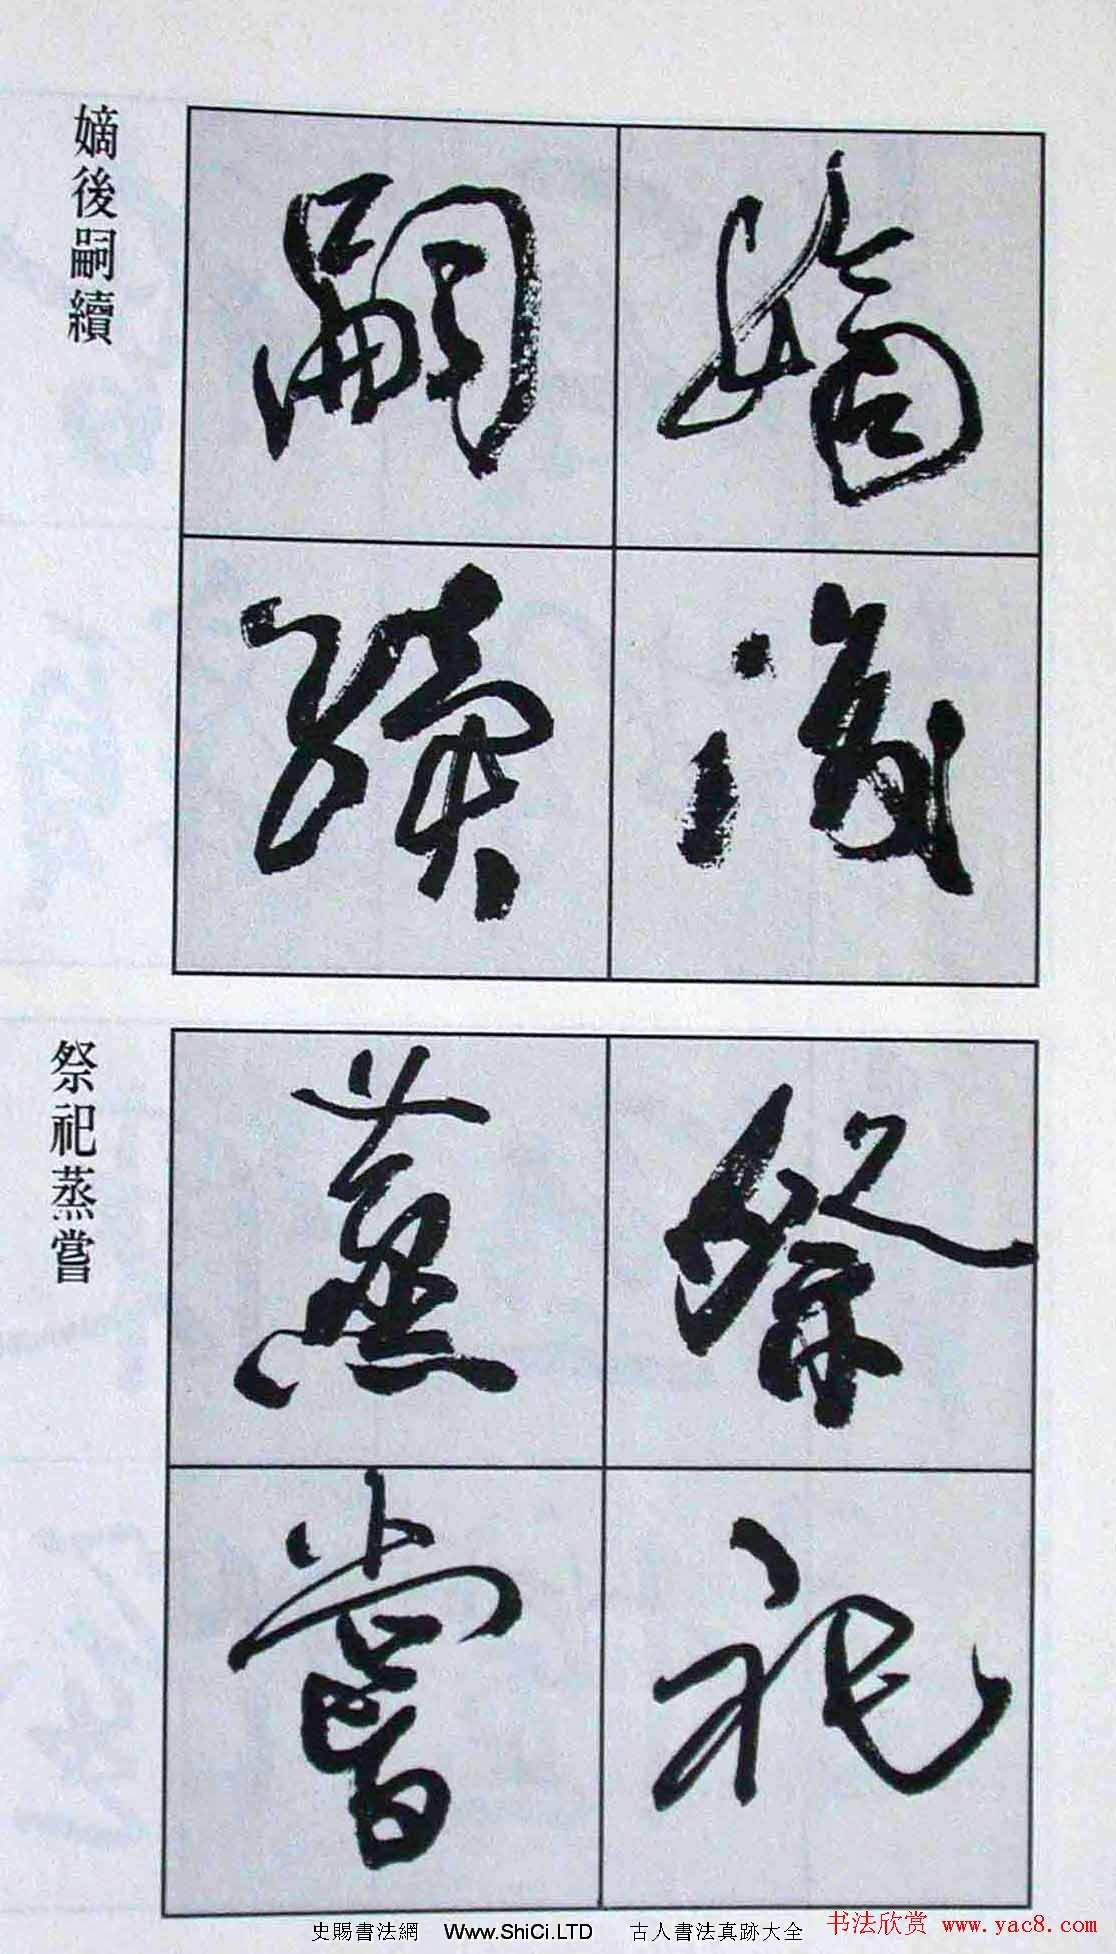 嫡後嗣續
嫡後
嗣續
祭祀蒸嘗
祭祀
蒸嘗
史賜書法網 Www.ShiCi.LTD 古人書法真跡大全
书法欣赏 www.yac8.com